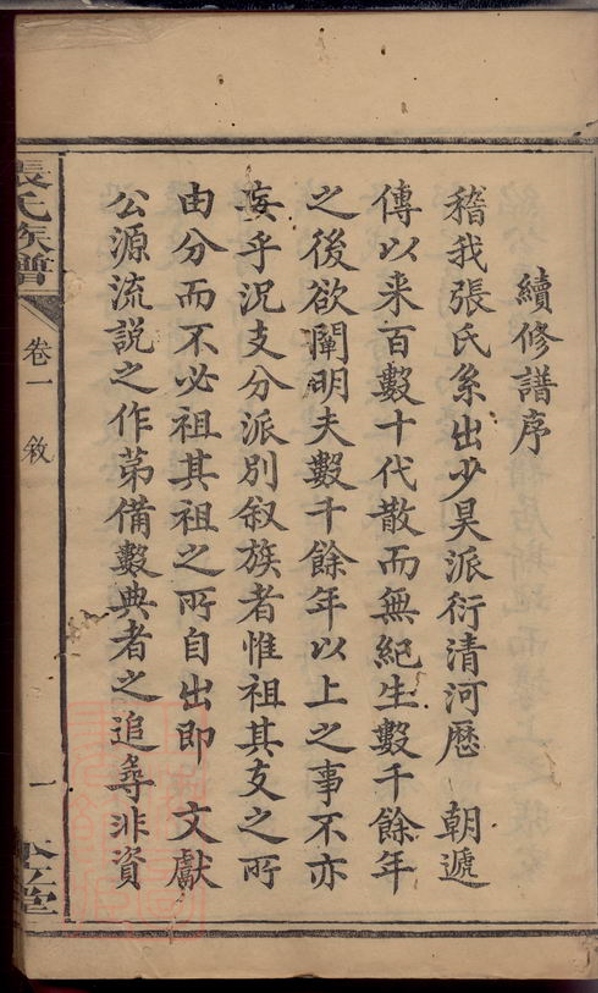 續修譜序
稽我張氏系出少昊派衍清河歷　朝遞
傳以来百數十代散而無紀生數千餘年
之後欲闡明夫數千餘年以上之事不亦
妄乎況支分派別叙族者惟祖其支之所
由分而不必祖其祖之所自出即　文獻
公源流說之作苐備數典者之追尋非資
張氏族譜
卷一
敘
一